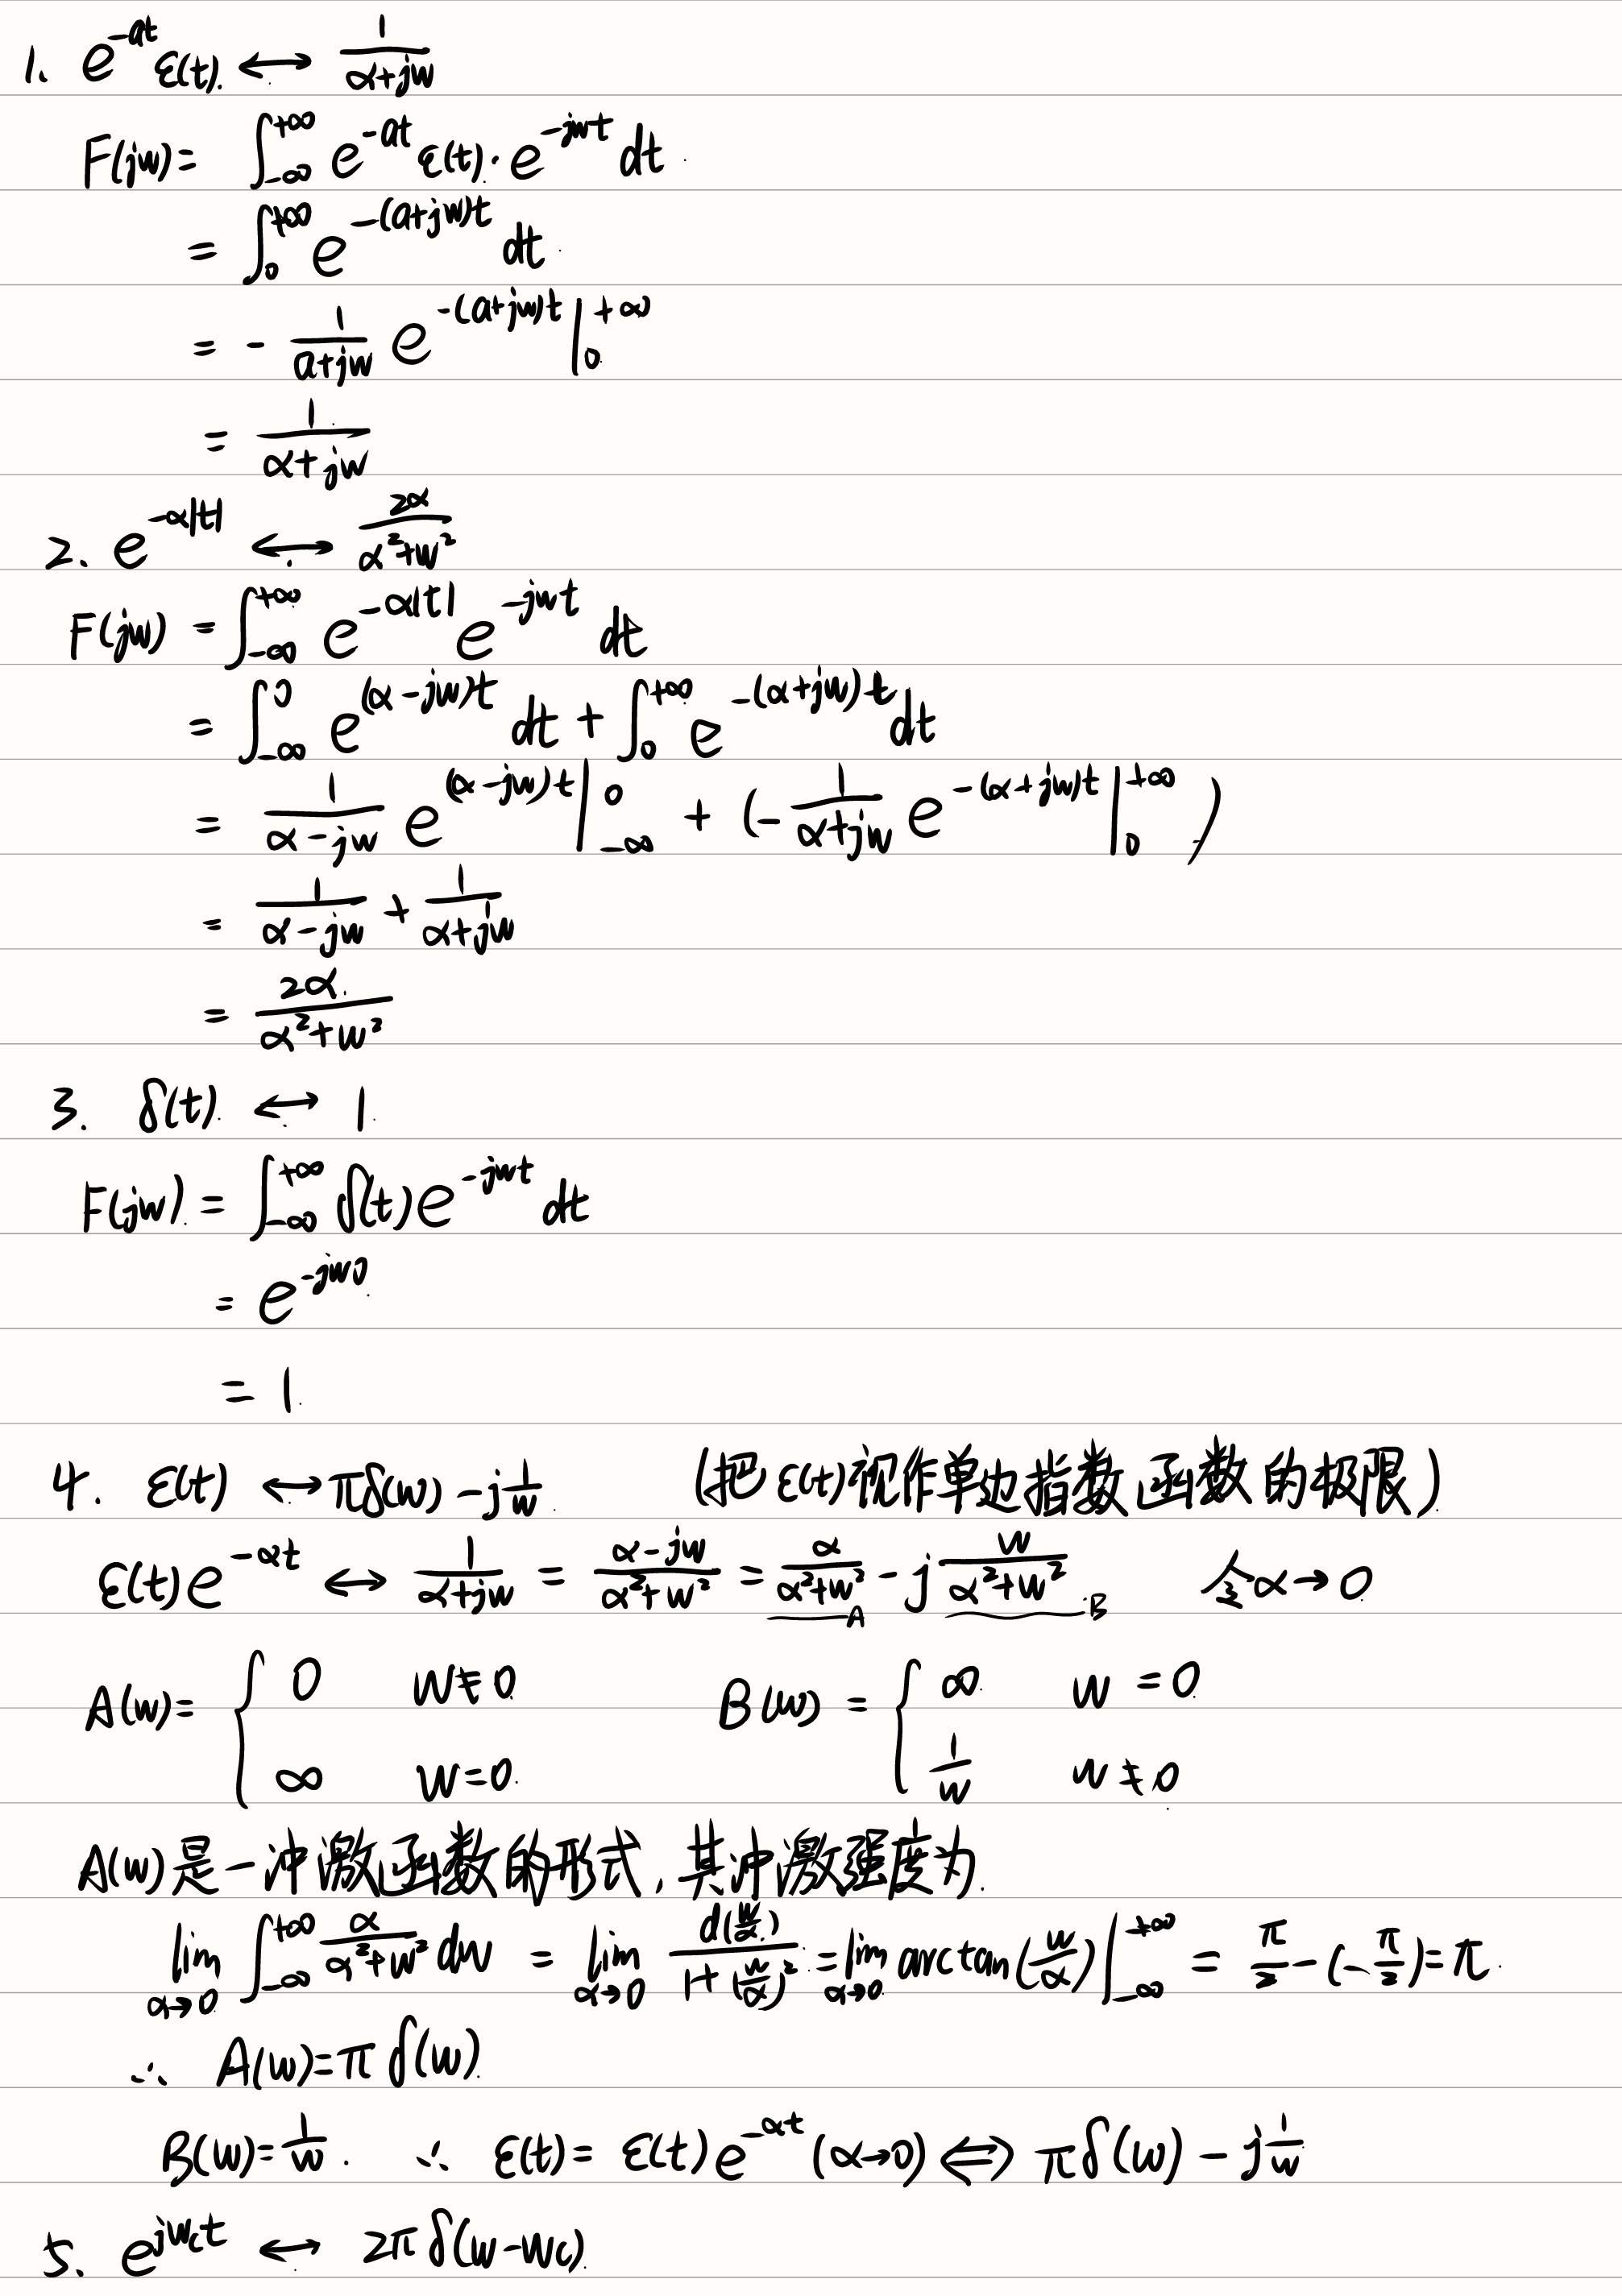 1. e^{-at} ε(t) ↔ \frac{1}{α+jw}
F(jw) = ∫_{-∞}^{+∞} e^{-at} ε(t)·e^{-jwt} dt
= ∫_{0}^{+∞} e^{-(a+jw)t} dt
= - \frac{1}{a+jw} e^{-(a+jw)t} |_{0}^{+∞}
= \frac{1}{α+jw}
2. e^{-α|t|} ↔ \frac{2α}{α²+w²}
F(jw) = ∫_{-∞}^{+∞} e^{-α|t|} e^{-jwt} dt
= ∫_{-∞}^{0} e^{(α-jw)t} dt + ∫_{0}^{+∞} e^{-(α+jw)t} dt
= \frac{1}{α-jw} e^{(α-jw)t} |_{-∞}^{0} + (-\frac{1}{α+jw} e^{-(α+jw)t} |_{0}^{+∞})
= \frac{1}{α-jw} + \frac{1}{α+jw}
= \frac{2α}{α²+w²}
3. δ(t) ↔ 1
F(jw) = ∫_{-∞}^{+∞} δ(t) e^{-jwt} dt
= e^{-jw0}
= 1
4. ε(t) ↔ πδ(w) - j\frac{1}{w} (把ε(t)视作单边指数函数的极限)
ε(t)e^{-αt} ↔ \frac{1}{α+jw} = \frac{α-jw}{α²+w²} = \frac{α}{α²+w²} A - j\frac{w}{α²+w²} B 令α→0
A(w) = { 0 w≠0 ; ∞ w=0 B(w) = { ∞ w=0 ; \frac{1}{w} w≠0
A(w)是一冲激函数的形式,其冲激强度为
\lim_{α→0} ∫_{-∞}^{+∞} \frac{α}{α²+w²} dw = \lim_{α→0} \frac{d(\frac{w}{α})}{1+(\frac{w}{α})²} = \lim_{α→0} arctan(\frac{w}{α}) |_{-∞}^{+∞} = \frac{π}{2} - (-\frac{π}{2}) = π
∴ A(w)=πδ(w)
B(w)=\frac{1}{w}. ∴ ε(t) = ε(t)e^{-αt} (α→0) ⇔ πδ(w) - j\frac{1}{w}
5. e^{jw_ct} ↔ 2πδ(w-w_c)